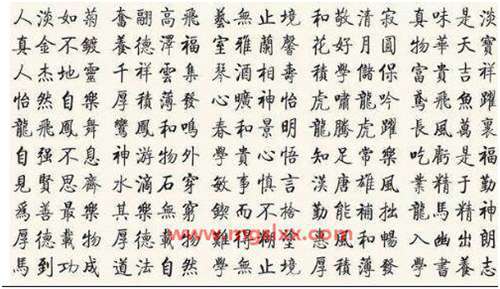 人淡如菊 奮翮高飛 藝無止境 和敬清寂 真味是淡
真金不鍍 養德澤福 室雅蘭馨 花好月圓 物華天寶
人杰地靈 千祥雲集 琴酒相壽 積學儲保 富貴吉祥
怡然自樂 厚積薄發 心曠神怡 虎嘯龍吟 鳶飛魚躍
龍飛鳳舞 鸞鳳和鳴 春和景明 龍騰虎躍 長風萬裏
自强不息 神游物外 學貴心悟 知足常樂 吃虧是福
見賢思齊 水滴石穿 敏事慎言 漢唐雄風 業精于勤
爲善最樂 其樂無窮 鍥而不捨 勤能補拙 龍馬精神
厚德載物 厚德載物 難得糊塗 惠風和暢 入幽出朗
馬到功成 道法自然 學無止境 厚積薄發 學養志
www.mgslxx.com